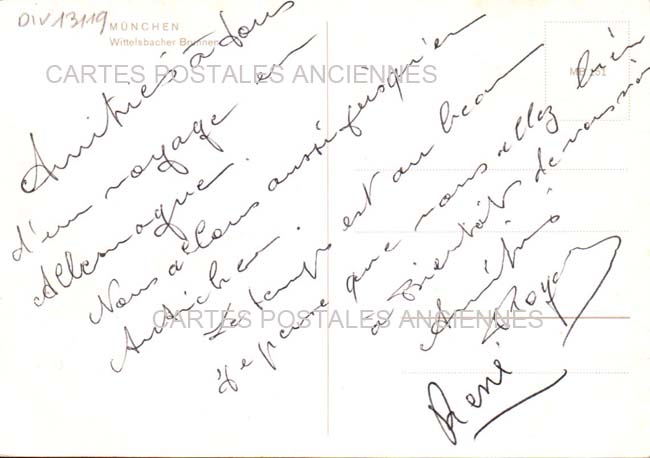 DIV13119
MÜNCHEN
Wittelsbacher Brunnen
MB 101
CARTES POSTALES ANCIENNES
Amitiés à tous
d'un voyage en
Allemagne.
Nous allons aussi jusqu'en
Autriche.
Le temps est au beau
Je pense que vous allez bien
à bientôt de vous
Amitiés
René
CARTES POSTALES ANCIENNES